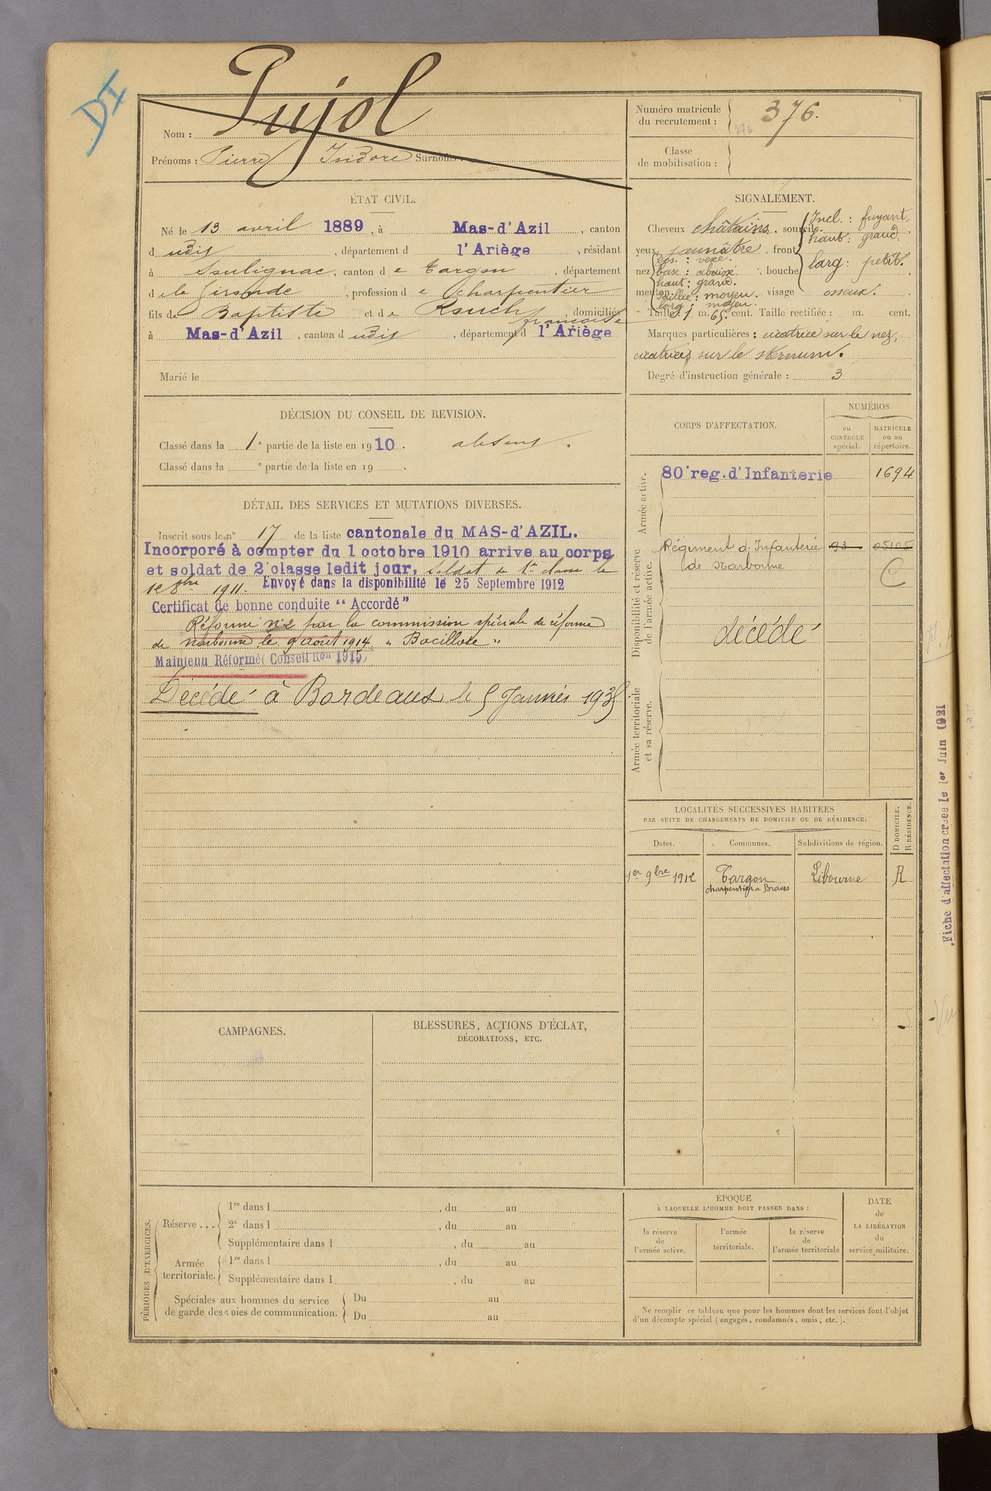 DI
Nom : Pujol
Prénoms : Pierre Isidore Surnoms :
Numéro matricule du recrutement : 376.
Classe de mobilisation :
ÉTAT CIVIL.
Né le 13 avril 1889, à Mas-d'Azil, canton
d udit, département d l'Ariège, résidant
à Soulignac, canton d e Targon, département
d e la Gironde, profession d e Charpentier
fils de Baptiste et de Rouch françoise, domiciliés
à Mas-d'Azil, canton d udit, département d l'Ariège
Marié le
SIGNALEMENT.
Cheveux châtains, sourcils
yeux jaunâtre, front Incl. : fuyant, haut : grand, larg : petit.
nez dos : vexe. base : haut : grand. saillie : moyen. larg : moyen. bouche
menton visage osseux.
Taille : 1 m. 65 cent. Taille rectifiée : m. cent.
Marques particulières : cicatrice sur le nez,
cicatrices sur le sternum.
Degré d'instruction générale : 3
DÉCISION DU CONSEIL DE REVISION.
Classé dans la 1e partie de la liste en 1910. absent.
Classé dans la e partie de la liste en 19 .
DÉTAIL DES SERVICES ET MUTATIONS DIVERSES.
Inscrit sous le n° 17 de la liste cantonale du MAS-d'AZIL.
Incorporé à compter du 1 octobre 1910 arrive au corps
et soldat de 2e classe ledit jour, soldat de 1e classe le
12 8bre 1911. Envoyé dans la disponibilité le 25 Septembre 1912
Certificat de bonne conduite " Accordé "
Réformé n°2 par la commission spéciale de réforme
de Narbonne le 9 août 1914 " Bacillose "
Maintenu Réformé (Conseil Ron 1915)
Décédé à Bordeaux le 5 Janvier 1935
CORPS D'AFFECTATION.
NUMÉROS
au CONTRÔLE spécial.
MATRICULE ou au répertoire.
Armée active.
80e reg. d'Infanterie 1694
Disponibilité et réserve de l'armée active.
Régiment d'Infanterie 93 05105
de Narbonne C
décédé
Armée territoriale et sa réserve.
LOCALITÉS SUCCESSIVES HABITÉES
PAR SUITE DE CHANGEMENTS DE DOMICILE OU DE RÉSIDENCE.
Dates. Communes. Subdivisions de région. D DOMICILE. R RÉSIDENCE.
1er 9bre 1912 Targon Libourne R
charpentier à
Fiche d'affectation créée le 1er Juin 1921
CAMPAGNES.
BLESSURES, ACTIONS D'ÉCLAT,
DÉCORATIONS, ETC.
PÉRIODES D'EXERCICES.
Réserve ...
1re dans l , du au
2e dans l , du au
Supplémentaire dans l , du au
Armée territoriale.
1re dans l , du au
Supplémentaire dans l , du au
Spéciales aux hommes du service de garde des voies de communication.
Du au
Du au
EPOQUE
À LAQUELLE L'HOMME DOIT PASSER DANS :
la réserve de l'armée active.
l'armée territoriale.
la réserve de l'armée territoriale
DATE de LA LIBÉRATION du service militaire.
Ne remplir ce tableau que pour les hommes dont les services font l'objet
d'un décompte spécial (engagés, condamnés, omis, etc.).